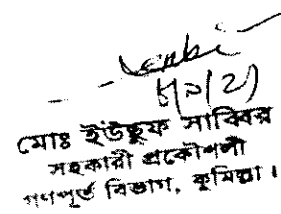 মোঃ ইউছুফ সাব্বির
সহকারী প্রকৌশলী
গণপূর্ত বিভাগ, কুমিল্লা।